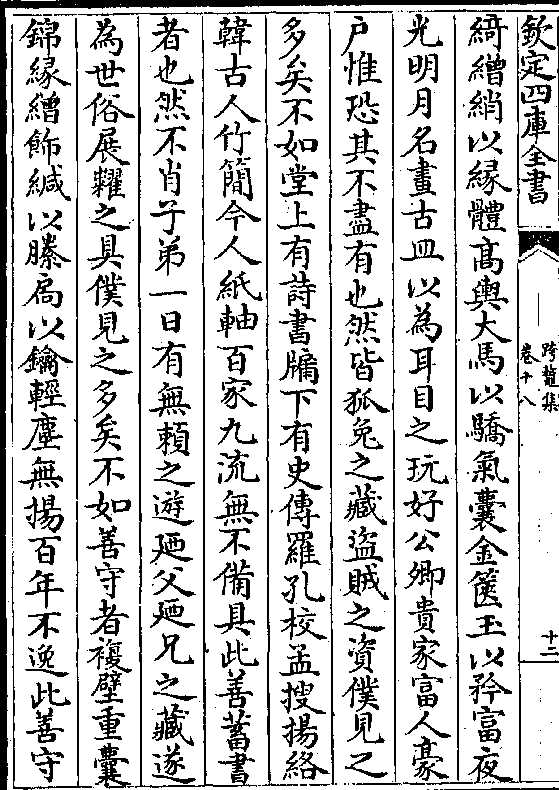 欽定四庫全書
跨鼇集
卷十八
十二
綺繒綃以緣體高輿大馬以驕氣囊金篋玉以矜富夜
光明月名畫古皿以為耳目之玩好公卿貴家富人豪
户惟恐其不盡有也然皆狐兔之藏盜賊之資僕見之
多矣不如堂上有詩書牖下有史傳羅孔校孟搜揚絡
韓古人竹簡今人紙軸百家九流無不備具此善蓄書
者也然不肖子弟一日有無賴之遊廼父廼兄之藏遂
為世俗展糶之具僕見之多矣不如善守者複壁重囊
錦緣繒飾緘以縢扃以鑰輕塵無揚百年不逸此善守